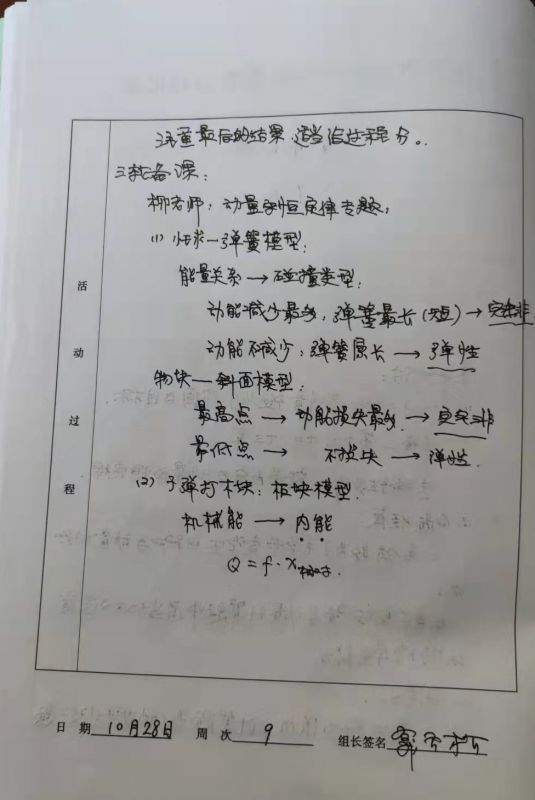 注重最后的结果,适当给过程分。
三、集备课:
柳老师:动量守恒定律专题:
(1) 小球—弹簧模型:
能量关系→碰撞类型:
动能减少最多:弹簧最长(短)→完全非
动能不减少:弹簧原长→弹性
物块—斜面模型:
最高点→动能损失最多→完全非
最低点→不损失→弹性.
(2) 子弹打木块:板块模型.
机械能→内能
Q=f·x相对.
活动过程
日 期 10月28日 周 次 9 组长签名